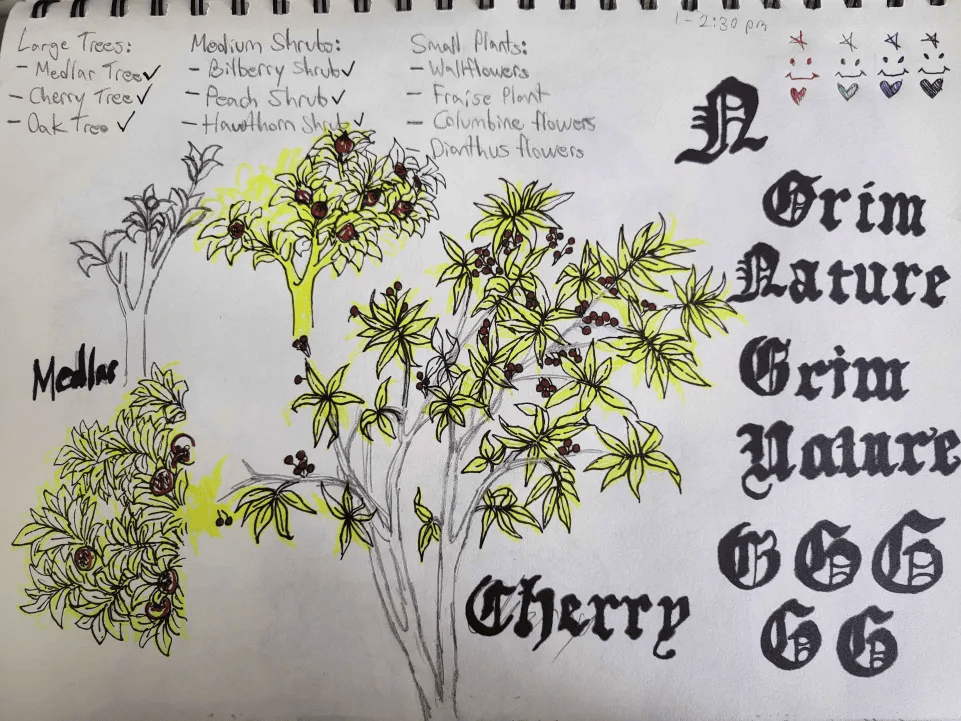 1-2:30 pm
Large Trees:
- Medlar Tree ✓
- Cherry Tree ✓
- Oak Tree ✓
Medium Shrubs:
- Bilberry Shrub ✓
- Peach Shrub ✓
- Hawthorn Shrub ✓
Small Plants:
- Wallflowers
- Fraise Plant
- Columbine flowers
- Dianthus flowers
N
Grim
Nature
Grim
Nature
G G G
G G
Medlar
Cherry